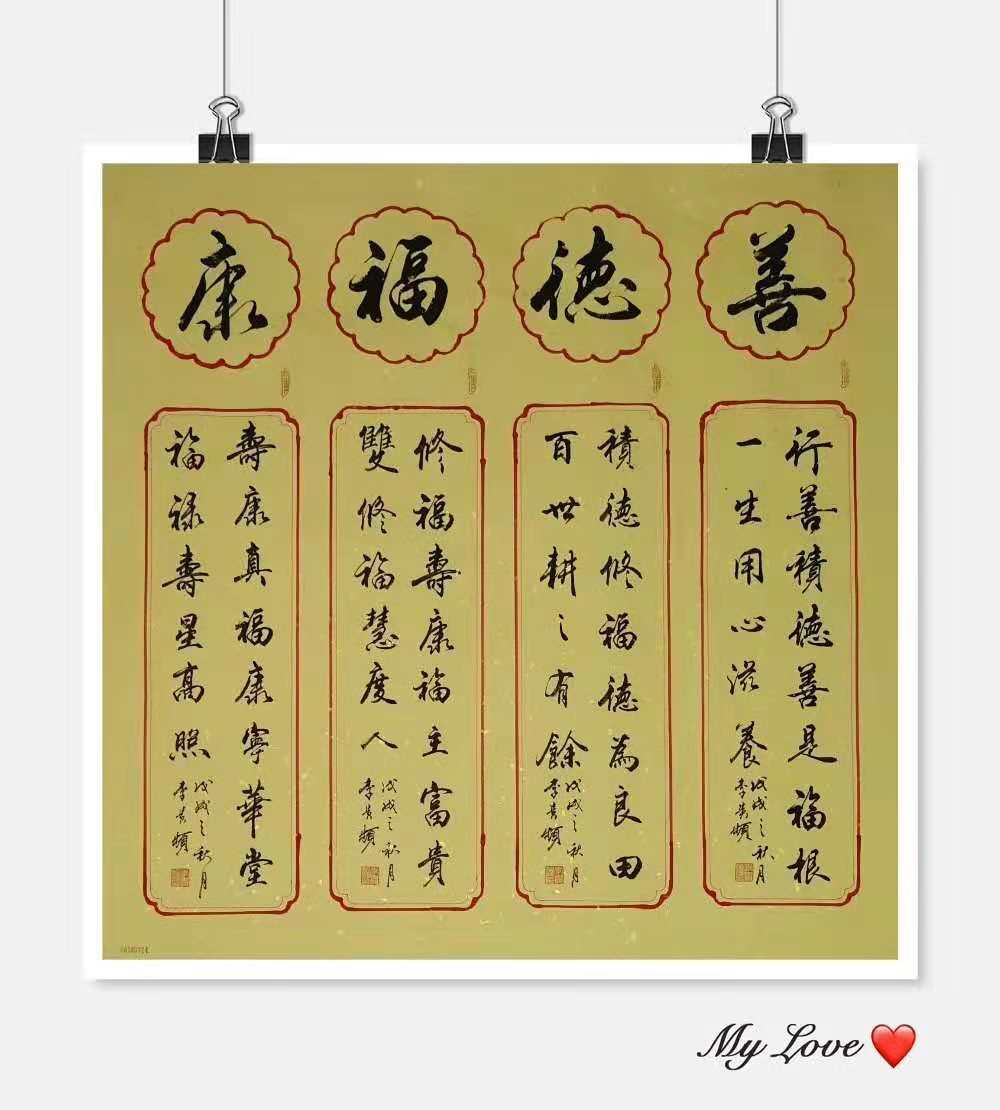 善
行善積德善是福根
一生用心滋養
戊戌之秋月
德
積德修福德為良田
百世耕之有餘
戊戌之秋月
福
修福壽康福主富貴
雙修福慧度人
戊戌之秋月
康
壽康真福康寧華堂
福禄壽星高照
戊戌之秋月
My Love